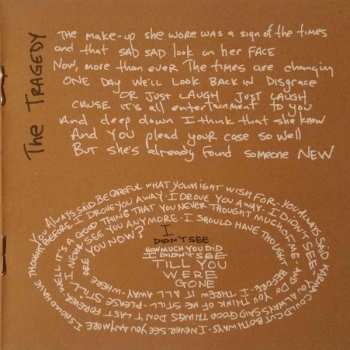 The TRAGEDY
THE MAKE-UP SHE WORE WAS A SIGN OF THE TIMES
and that SAD SAD look on her FACE
Now, more than ever The times are changing
ONE DAY WE'LL LOOK BACK IN DISGRACE
OR JUST LAUGH JUST LAUGH
CAUSE IT'S ALL ENTERTAINMENT TO YOU
And deep down I think that she know
And YOU plead your case so well
But she's already found someone NEW
YOU ALWAYS SAID BE CAREFUL WHAT YOU MIGHT WISH FOR - YOU ALWAYS SAID
I DROVE YOU AWAY - I DROVE YOU AWAY - I DIDN'T SEE
IT'S A GOOD THING THAT YOU NEVER THOUGHT MUCH OF ME
NEVER SEE YOU ANYMORE - I SHOULD HAVE THOUGHT
ARE YOU NOW?
I
DIDN'T SEE
HOW MUCH YOU DID
I DIDN'T SEE
TILL YOU
WERE
GONE
BEFORE - I THREW IT ALL AWAY - WHERE
DO YOU THINK OF ME STILL - PLEASE STILL
YOU ALWAYS SAID GOOD THINGS DON'T LAST FOREVER
COULD CUT BOTH WAYS - I NEVER SEE YOU ANYMORE - I SHOULD HAVE THOUGHT